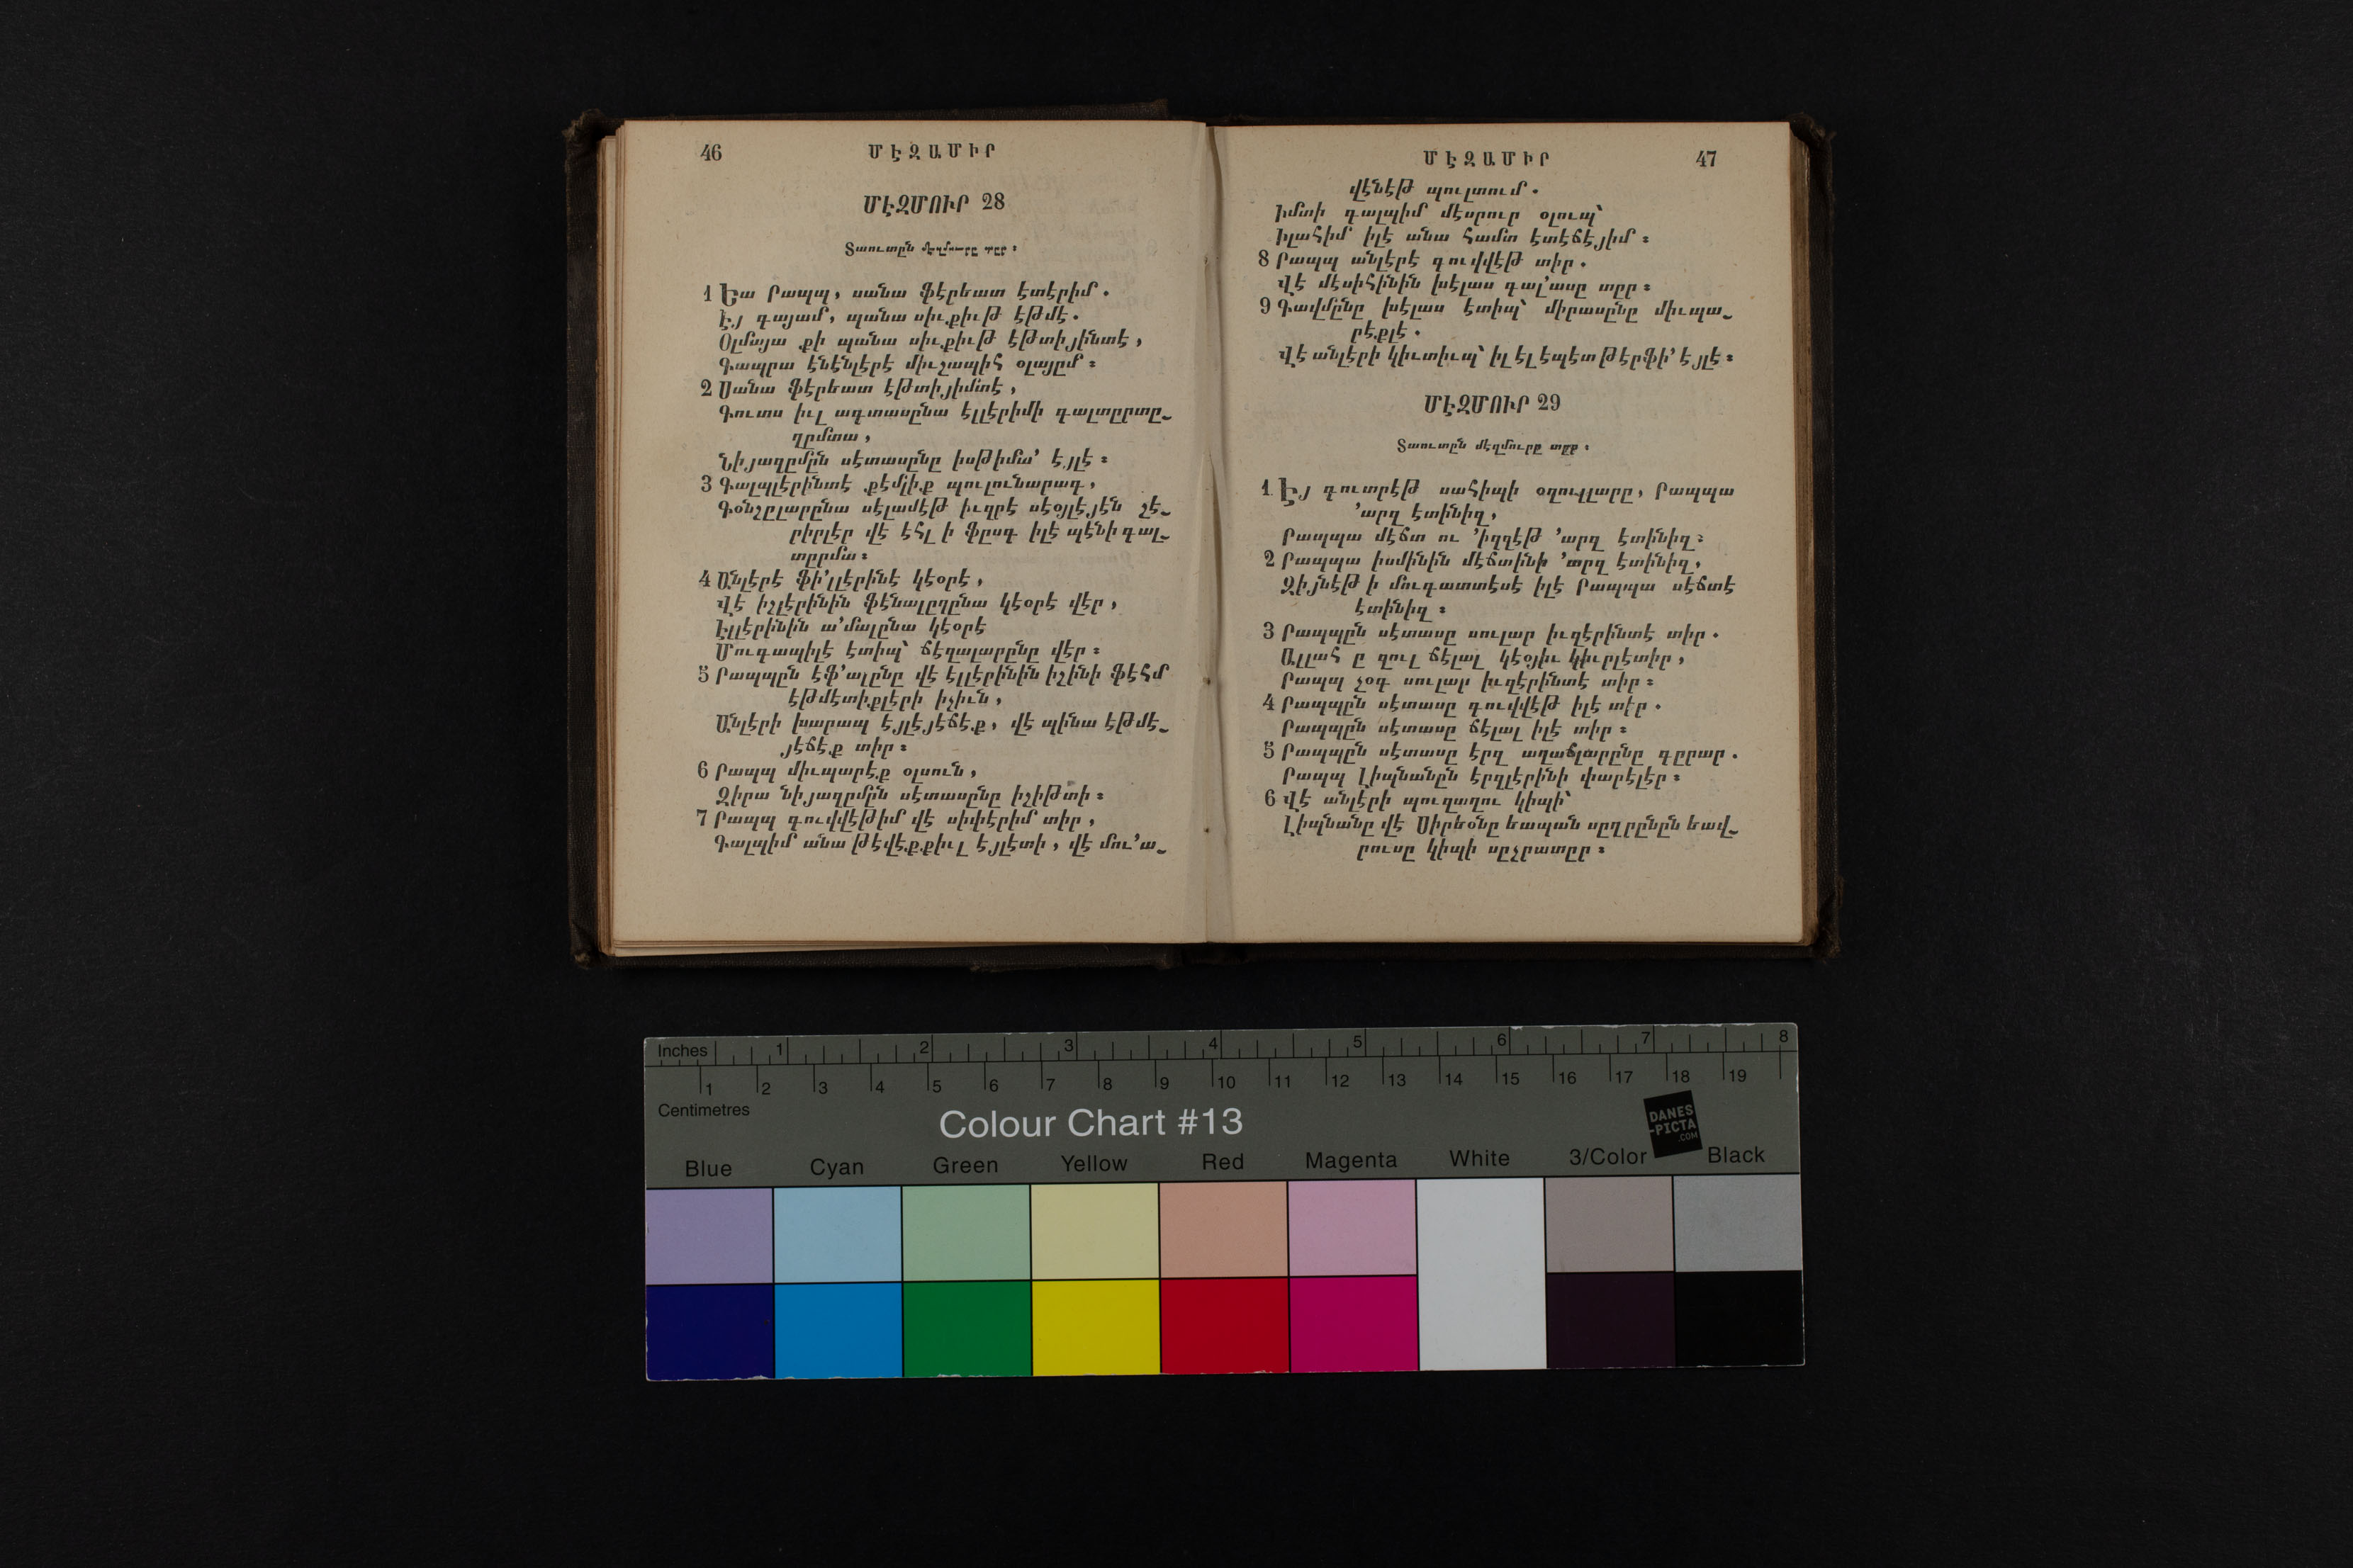 46
ՄԷԶԱՄԻՐ
ՄԷԶՄՈՒՐ 28
Տաուտըն մէզմուրը տըր ։
1 Եա Րապպ, սանա ֆէրեատ էտէրիմ.
Էյ գայամ, պանա սիւքիւթ էթմէ.
Օլմայա քի պանա սիւքիւթ էթտիյինտէ,
Գապրա էնէնլէրէ միւշապիհ օլայըմ ։
2 Սանա ֆէրեատ էթտիյիմտէ,
Գուտս իւլ ագտասընա էլլէրիմի գալտըրտը֊
ղըմտա,
Նիյազըմըն սէտասընը իսթիմա՚ էյլէ ։
3 Գալպլէրինտէ քէմլիք պուլունարագ,
Գօնշըլարընա սէլամէթ իւզրէ սէօյլէյէն շէ֊
րիրլէր վէ էհլ ի ֆըսգ իլէ պէնի գալ֊
տըրմա ։
4 Անլէրէ ֆի՚լլէրինէ կէօրէ,
Վէ իշլէրինին ֆէնալըղընա կէօրէ վէր,
Էլլէրինին ա՚մալընա կէօրէ
Մուգապիլէ էտիպ՝ ճէզալարընը վէր ։
5 Րապպըն էֆ՚ալընը վէ էլլէրինին իշինի ֆէհմ
էթմէտիքլէրի իչիւն,
Անլէրի խարապ էյլէյէճէք, վէ պինա էթմէ֊
յէճէք տիր ։
6 Րապպ միւպարէք օլսուն,
Զիրա նիյազըմըն սէտասընը իշիթտի ։
7 Րապպ գուվվէթիմ վէ սիփէրիմ տիր,
Գալպիմ անա թէվէքքիւլ էյլէտի, վէ մու՚ա֊
ՄԷԶԱՄԻՐ
47
վէնէթ պուլտում.
Իմտի գալպիմ մէսրուր օլուպ՝
Իլահիմ իլէ անա համտ էտէճէյիմ ։
8 Րապպ անլէրէ գուվվէթ տիր.
Վէ մէսիհինին խէլաս գալ՚ասը տըր ։
9 Գավմընը խէլաս էտիպ՝ միրասընը միւպա֊
րէքլէ.
Վէ անլէրի կիւտիւպ՝ իլ էլ էպէտ թէրֆի՚ էյլէ ։
ՄԷԶՄՈՒՐ 29
Տաուտըն մէզմուրը տըր ։
1 Էյ գուտրէթ սահիպի օղուլլարը, Րապպա
՚արզ էտինիզ,
Րապպա մէճտ ու ՚իզզէթ ՚արզ էտինիզ ։
2 Րապպա իսմինին մէճտինի ՚արզ էտինիզ,
Զիյնէթ ի մուգատտէսէ իլէ Րապպա սէճտէ
էտինիզ ։
3 Րապպըն սէտասը սուլար իւզէրինտէ տիր.
Ալլահ ը զուլ ճէլալ կէօյիւ կիւրլէտիր,
Րապպ չօգ սուլար իւզէրինտէ տիր ։
4 Րապպըն սէտասը գուվվէթ իլէ տէր.
Րապպըն սէտասը ճէլալ իլէ տիր ։
5 Րապպըն սէտասը էրզ աղաճլարընը գըրար.
Րապպ Լիպնանըն էրզլէրինի փարէլէր ։
6 Վէ անլէրի պուզաղու կիպի՝
Լիպնանը վէ Սիրեօնը եապան սըղըրընըն եավ֊
րուսը կիպի սըչրատըր ։
Inches 1 2 3 4 5 6 7 8
1 2 3 4 5 6 7 8 9 10 11 12 13 14 15 16 17 18 19
Centimetres
Colour Chart #13
DANES
-PICTA
.COM
Blue Cyan Green Yellow Red Magenta White 3/Color Black